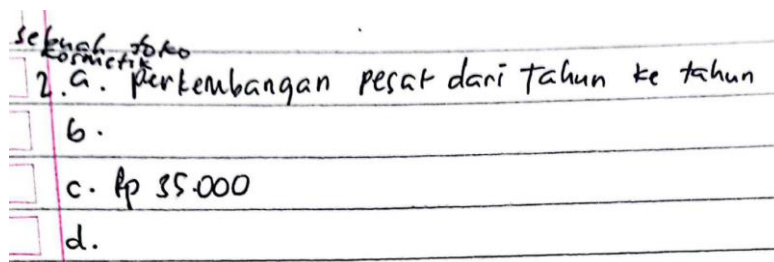 sebuah toko
kosmetik
2. a. perkembangan pesat dari tahun ke tahun
b.
c. Rp 35.000
d.